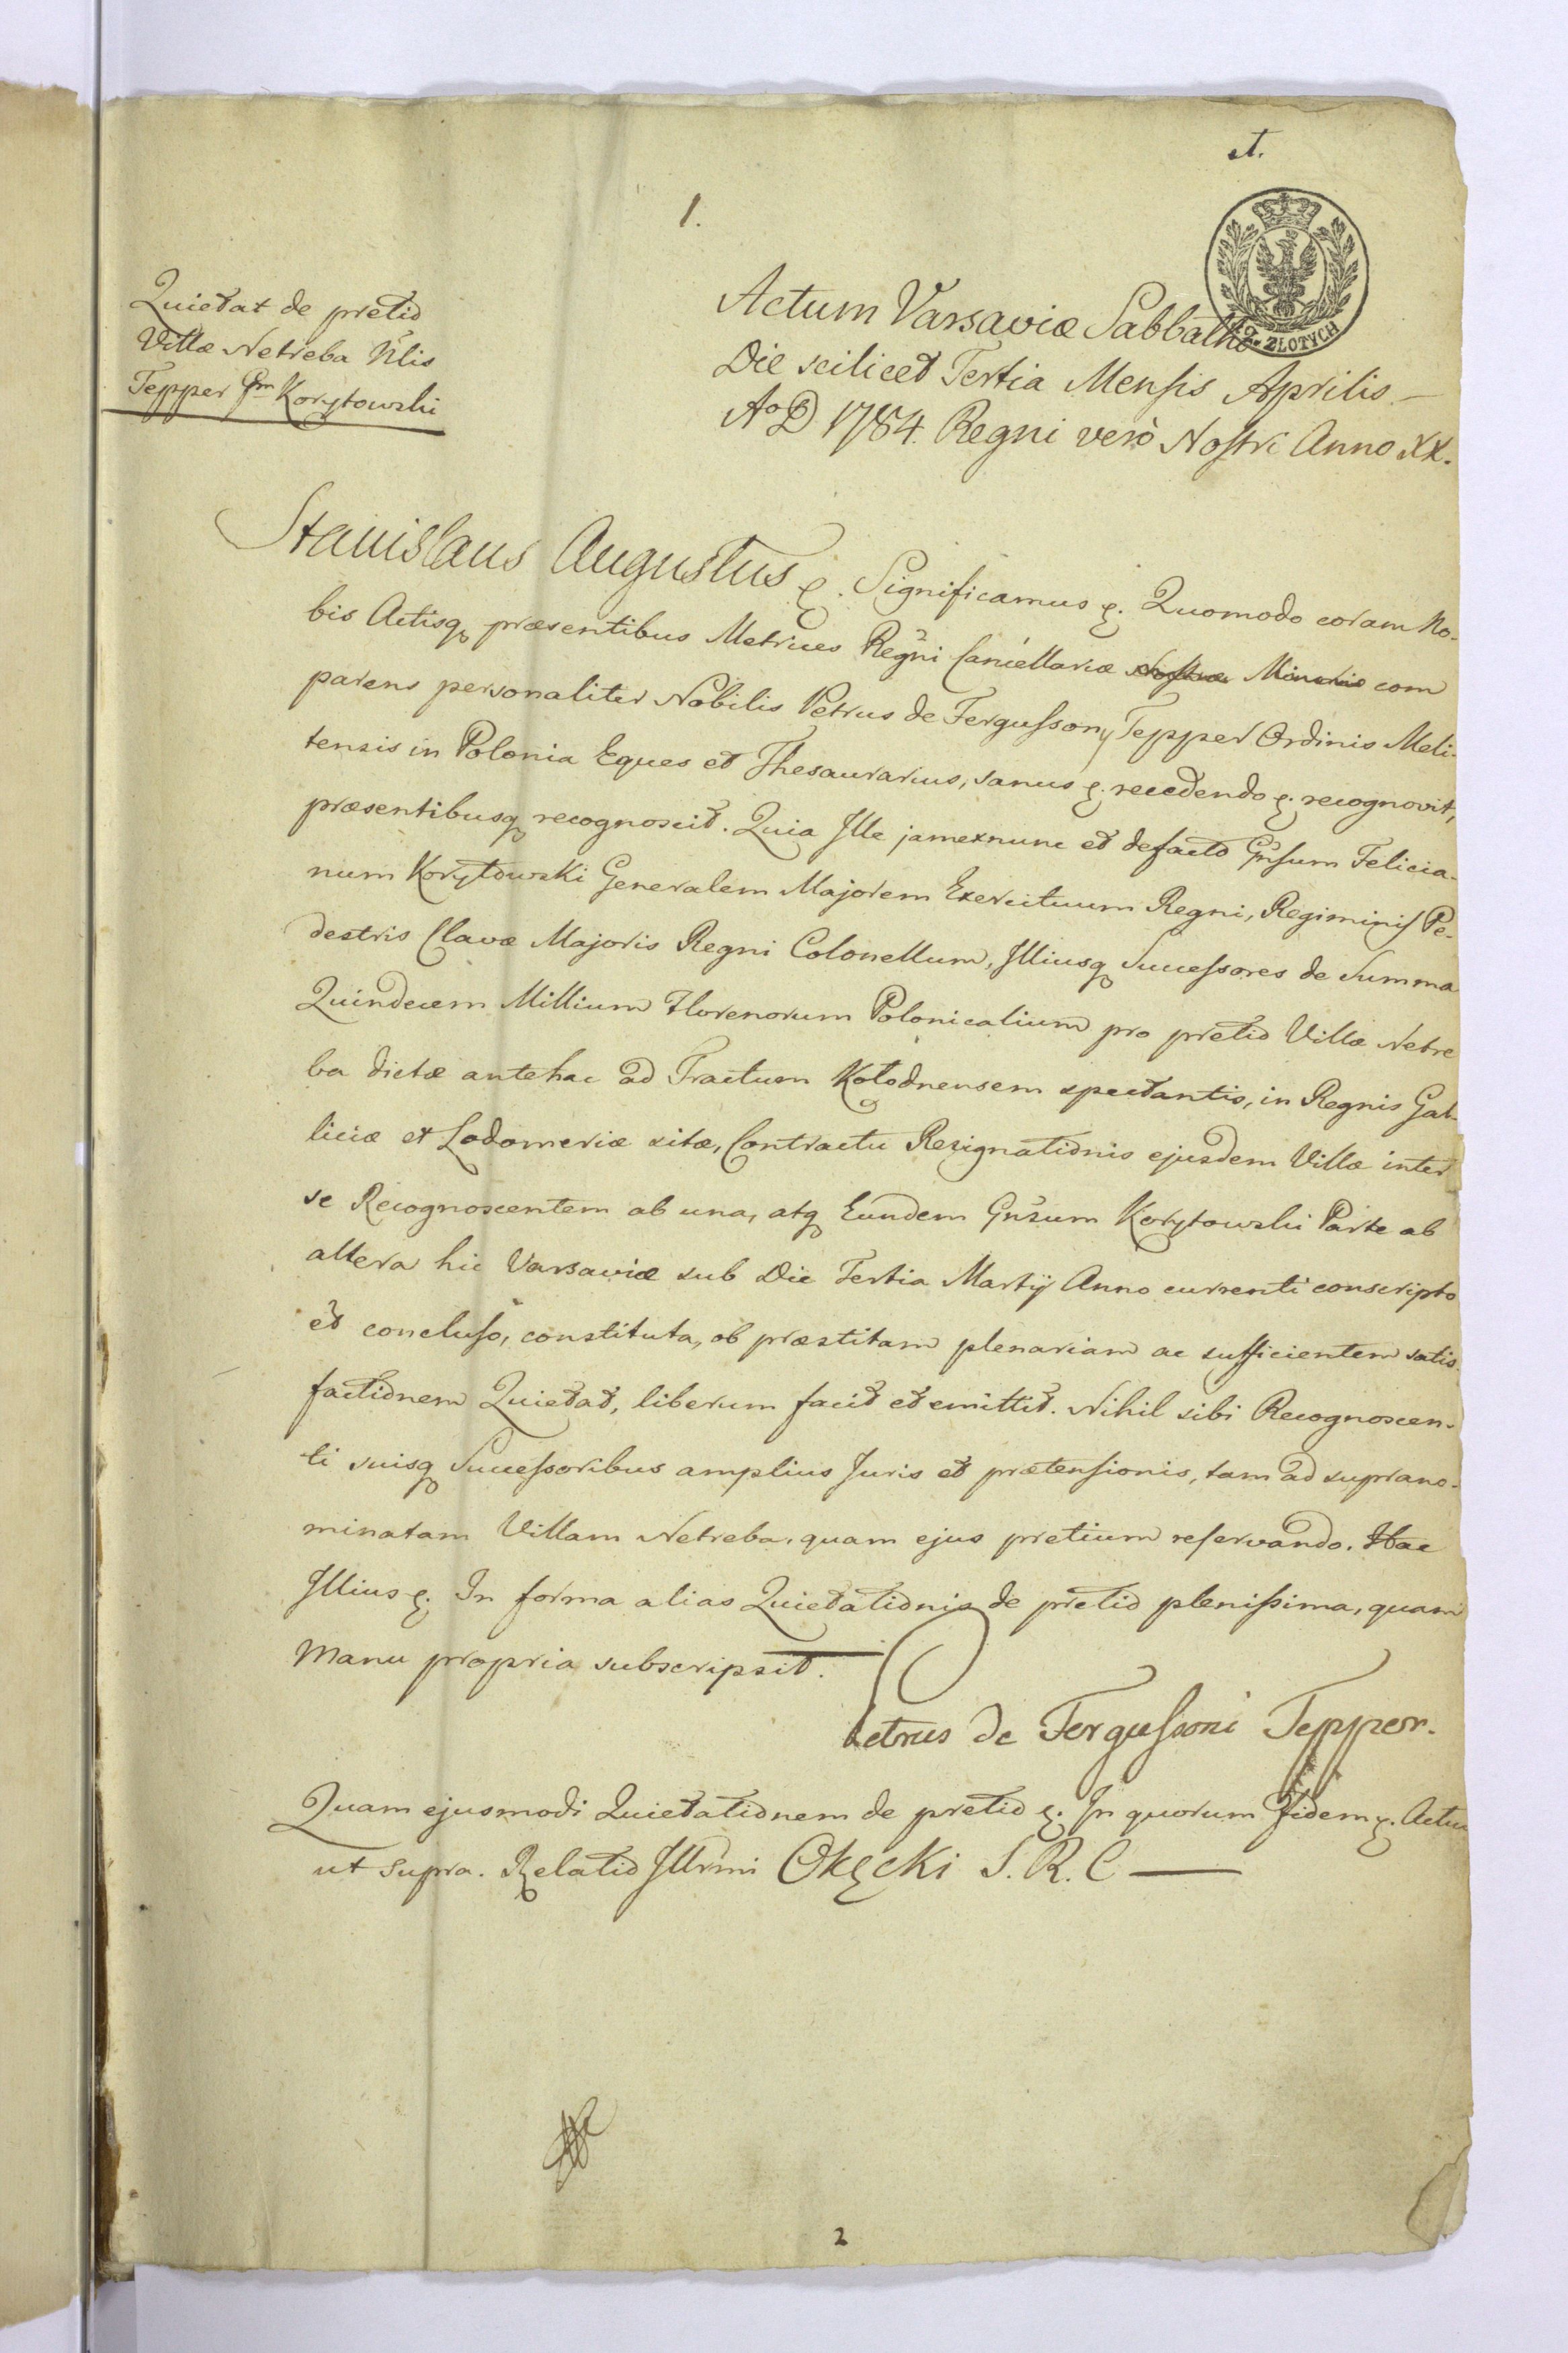 1.
ZŁOTYCH
Quietat de pretio
Villæ Netreba Nlis
Tepper Gm Korytowski
Actum Varsaviæ Sabbatho
Die scilicet Tertia Mensis Aprilis –
Ao D 1784. Regni verò Nostri Anno XX.
Stanislaus Augustus &. Significamus &. Quomodo coram No-
bis Actisq præsentibus Metrices Regni Cancellariæ Minoris com
parens personaliter Nobilis Petrus de Fergusson Tepper Ordinis Meli-
tensis in Polonia Eques et Thesaurarius, sanus &. recedendo &. recognovit,
præsentibusq recognoscit. Quia Ille jamexnunc et defacto Gnsum Felicia-
num Korytowski Generalem Majorem Exercituum Regni, Regiminis Pe-
destris Clavæ Majoris Regni Colonellum, Illiusq Successores de Summa
Quindecem Millium Florenorum Polonicalium pro pretio Villæ Netre
ba dictæ antehac ad Tractum Kołodnensem spectantis, in Regnis Gal-
liciæ et Lodomeriæ sitæ, Contractu Resignationis ejusdem Villæ inter
se Recognoscentem ab una, atq Eundem Gnsum Korytowski Parte ab
altera hic Varsaviæ sub Die Tertia Martij Anno currenti conscripto
et concluso, constituta, ob præstitam plenariam ac sufficientem satis-
factionem Quietat, liberum facit et emittit. Nihil sibi Recognoscen-
ti suisq Successoribus amplius Juris et prætensionis, tam ad suprano-
minatam Villam Netreba, quam ejus pretium reservando. Hac
Illius &. In forma alias Quietationis de pretio plenissima, quam
Manu propria subscripsit.
Petrus de Fergussoni Tepper.
Quam ejusmodi Quietationem de pretio &. In quorum Fidem &. Actu
ut supra. Relatio Illrmi Okęcki S. R. C —
2